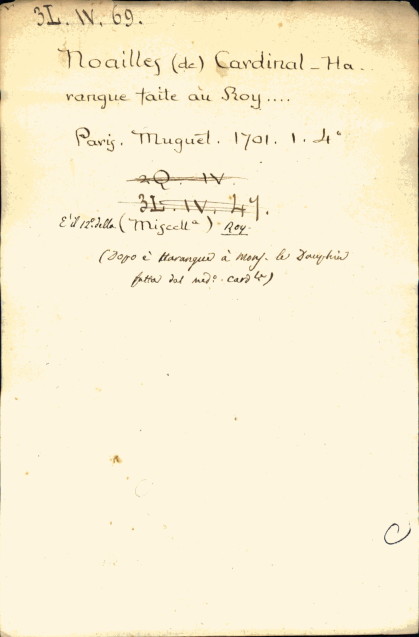 3L. IV. 69.
Noailles (de) Cardinal - Ha-
rangue faite au Roy....
Paris. Muguet. 1701. 1. 4°
2Q. IV.
3L. IV. 47.
È il 12° della (Miscellª) Roy
(Dopo è Harangue à Mons. le Dauphin
fatta dal med° card^le)